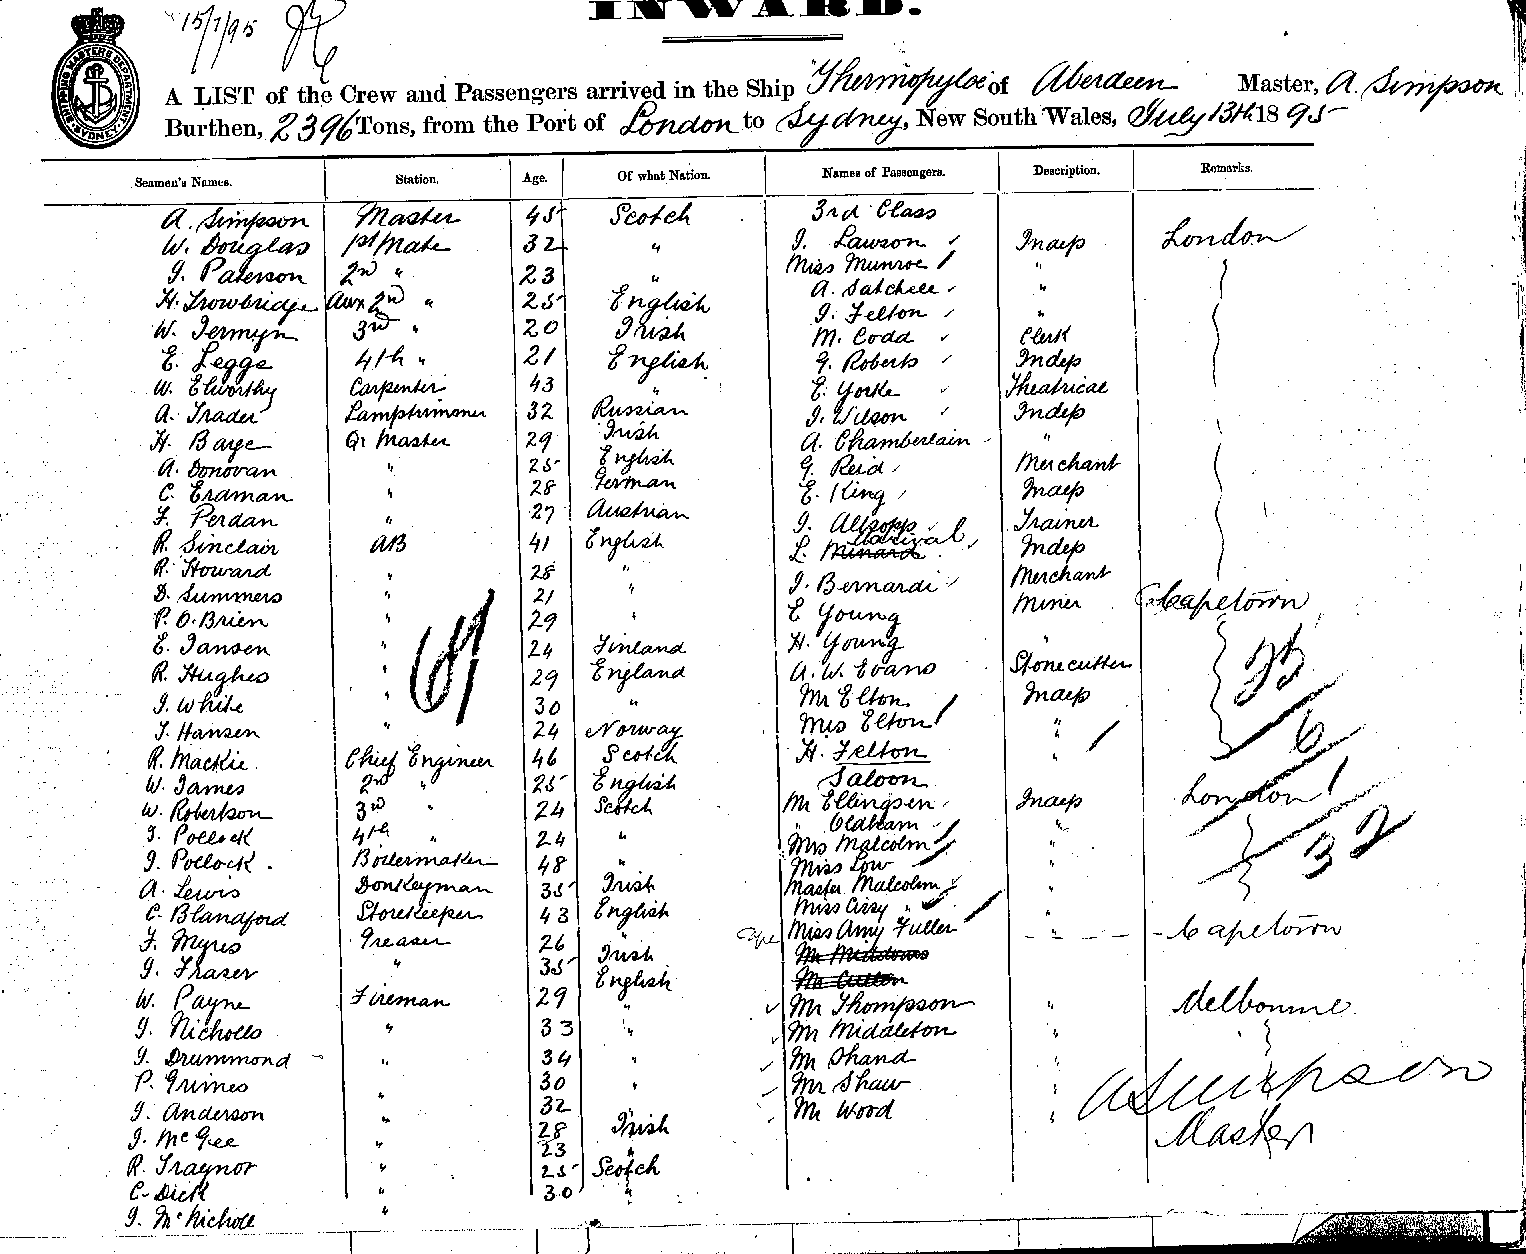 INWARD.
15/7/95
SHIPPING MASTERS DEPARTMENT SYDNEY
A LIST of the Crew and Passengers arrived in the Ship Thermopyloe of Aberdeen Master, A. Simpson
Burthen, 2396 Tons, from the Port of London to Sydney, New South Wales, July 13th 1895
Seamen's Names. Station. Age. Of what Nation. Names of Passengers. Description. Remarks.
A. Simpson Master 45 Scotch 3rd Class
W. Douglas 1st Mate 32 " J. Lawson Indep London
J. Paterson 2nd " 23 " Miss Munroe "
H. Trowbridge Aux 2nd " 25 English A. Satchell "
W. Jermyn 3rd " 20 Irish J. Felton "
E. Legge 4th " 21 English M. Codd Clerk
W. Elworthy Carpenter 43 " G. Roberts Indep
A. Trader Lamptrimmer 32 Russian E. Yorke Theatrical
H. Barge Qr Master 29 Irish J. Wilson Indep
A. Donovan " 25 English A. Chamberlain "
C. Erdman " 28 German G. Reid Merchant
F. Perdan " 27 Austrian E. King Indep
R. Sinclair AB 41 English J. Allsopp Trainer
R. Howard " 28 " L. Minard Indep
D. Summers " 21 " J. Bernardi Merchant
P. O.Brien " 29 " E Young Miner Capetown
E. Jansen " 24 Finland H. Young "
R. Hughes " 29 England A. W. Evans Stonecutter
J. White " 30 " Mr Elton Indep
T. Hansen " 24 Norway Mrs Elton "
R. Mackie Chief Engineer 46 Scotch H. Felton "
W. James 2nd " 25 English Saloon
W. Robertson 3rd " 24 Scotch Mr Ellingsen Indep London
J. Pollock 4th " 24 " " Oldham "
J. Pollock Boilermaker 48 " Mrs Malcolm "
A. Lewis Donkeyman 35 Irish Miss Low "
C. Blandford Storekeeper 43 English Master Malcolm "
F. Myres Greaser 26 Irish Miss Cissy " "
J. Fraser " 35 English Miss Amy Fuller " Capetown
W. Payne Fireman 29 " Mr Thompson " Melbourne
J. Nicholls " 33 " Mr Middleton "
J. Drummond " 34 " Mr Shand "
P. Grimes " 30 " Mr Shaw "
J. Anderson " 32 Mr Wood "
J. McGee " 28 Irish
R. Traynor " 23 "
C. Dick " 25 Scotch
J. McNicholl " 30 "
61
33
6
32
A Simpson
Master